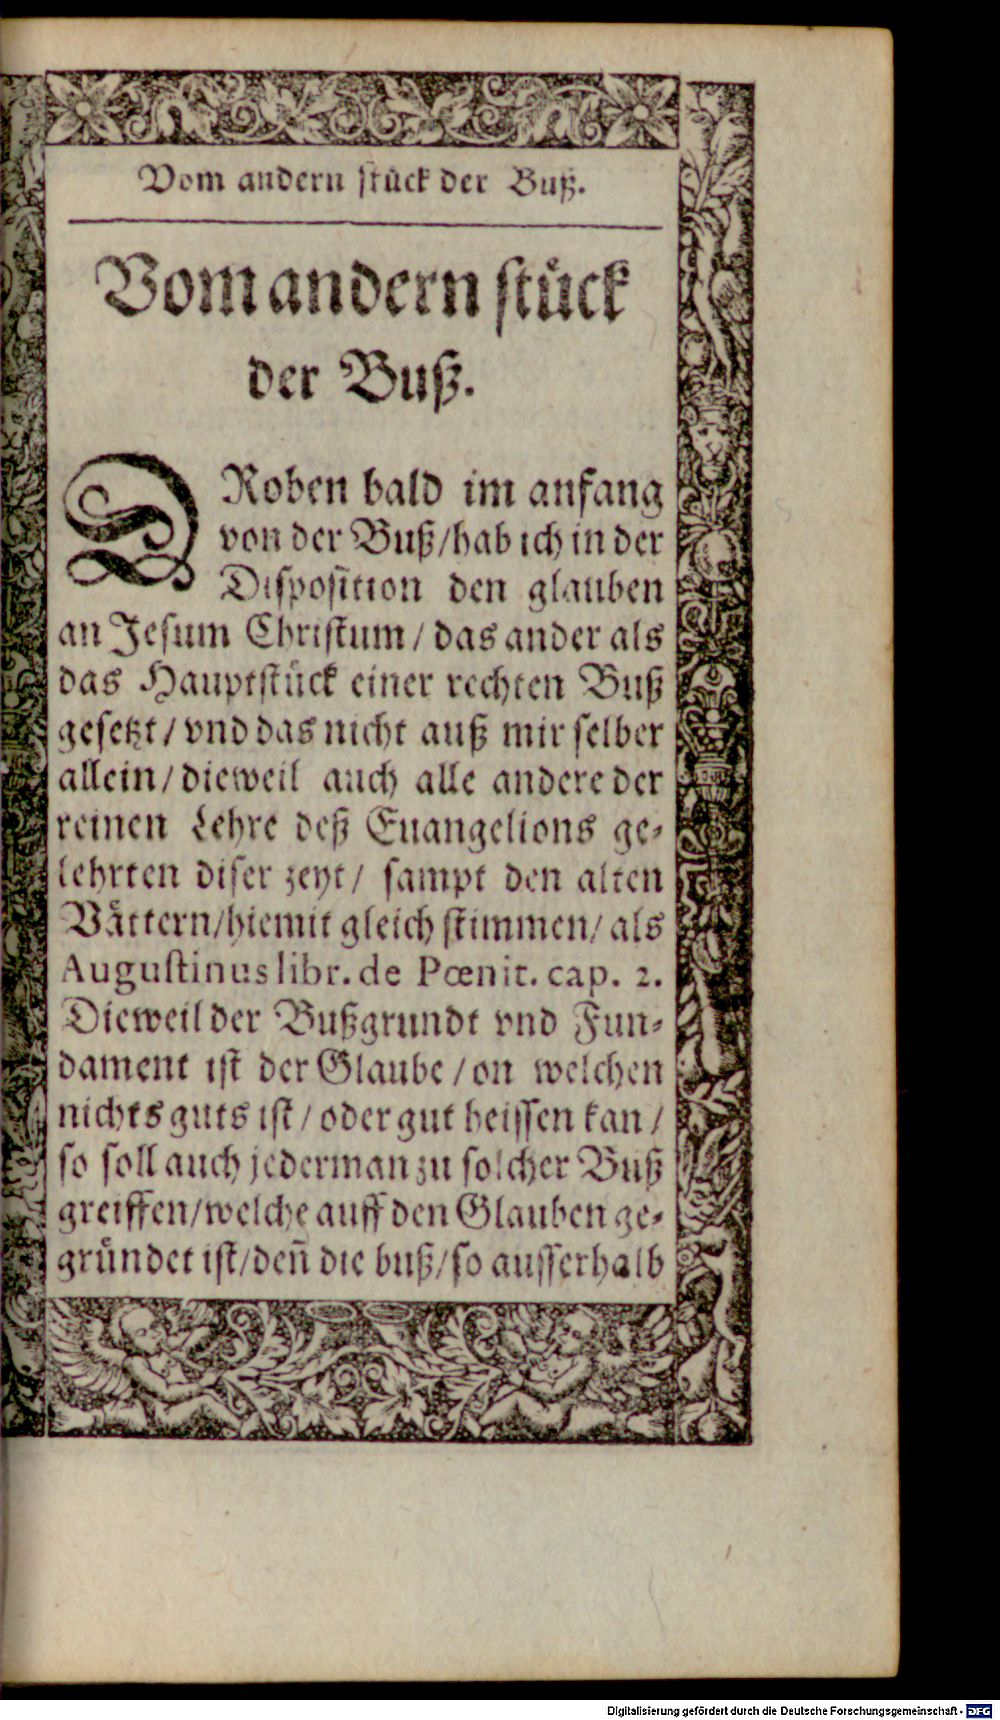 Vom andern stück der Buß.
Vom andern stück
der Buß.
DRoben bald im anfang
von der Buß/hab ich in der
Disposition den glauben
an Jesum Christum / das ander als
das Hauptstück einer rechten Buß
gesetzt / vnd das nicht auß mir selber
allein / dieweil auch alle andere der
reinen Lehre deß Euangelions ge⸗
lehrten diser zeyt / sampt den alten
Vättern/hiemit gleich stimmen/ als
Augustinus libr. de Pœnit. cap. 2.
Dieweil der Bußgrundt vnd Fun⸗
dament ist der Glaube / on welchen
nichts guts ist / oder gut heissen kan /
so soll auch jederman zu solcher Buß
greiffen/welche auff den Glauben ge⸗
gründet ist/deñ die buß/so ausserhalb
Digitalisierung gefördert durch die Deutsche Forschungsgemeinschaft - DFG